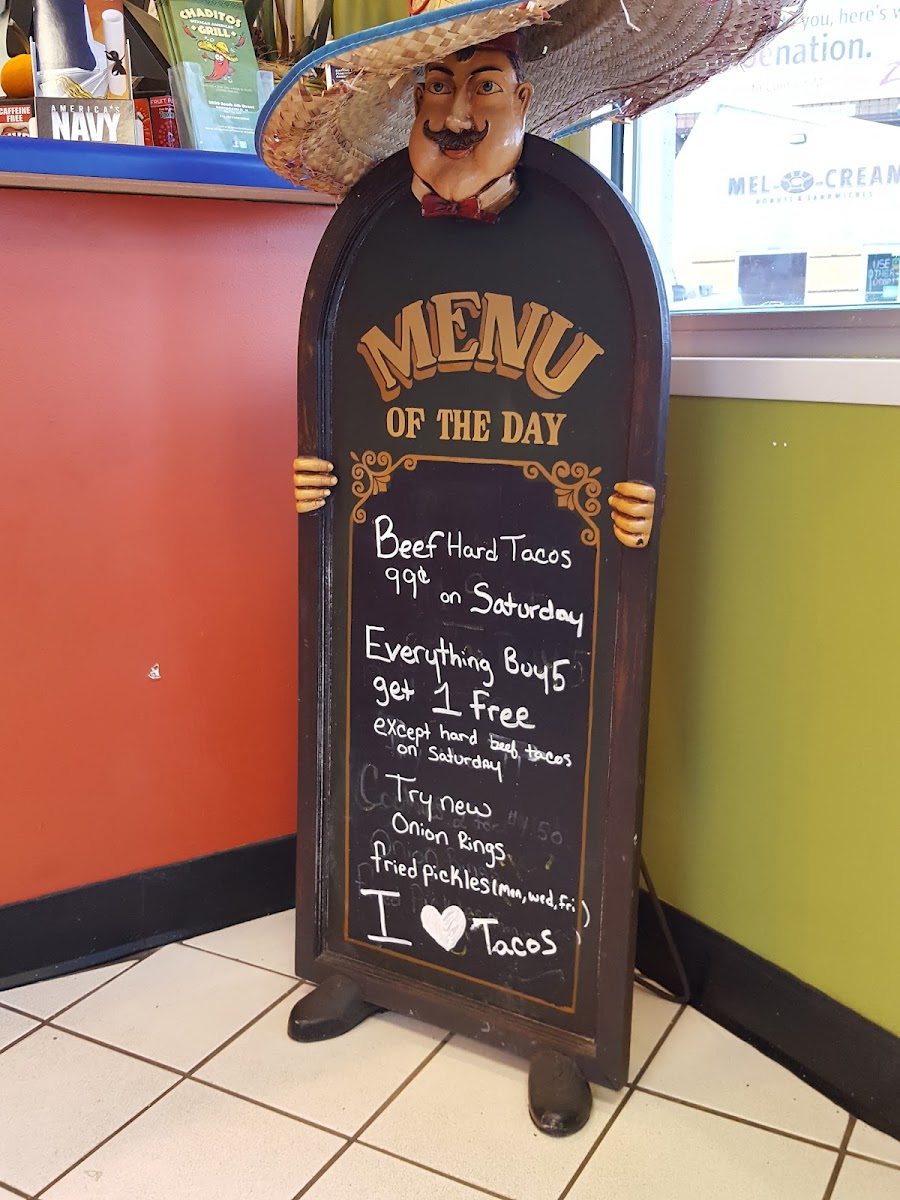 CHADITOS
MEXICAN AMERICAN
GRILL
AMERICA'S
NAVY
CAFFEINE
FREE
you, here's
enation.
MEL-O-CREAM
DONUTS & SANDWICHES
USE
OTHER
DOOR
MENU
OF THE DAY
Beef Hard Tacos
99¢ on Saturday
Everything Buy 5
get 1 free
except hard beef tacos
on Saturday
Try new
Onion Rings
fried pickles (Mon, wed, fri)
I ♥ Tacos